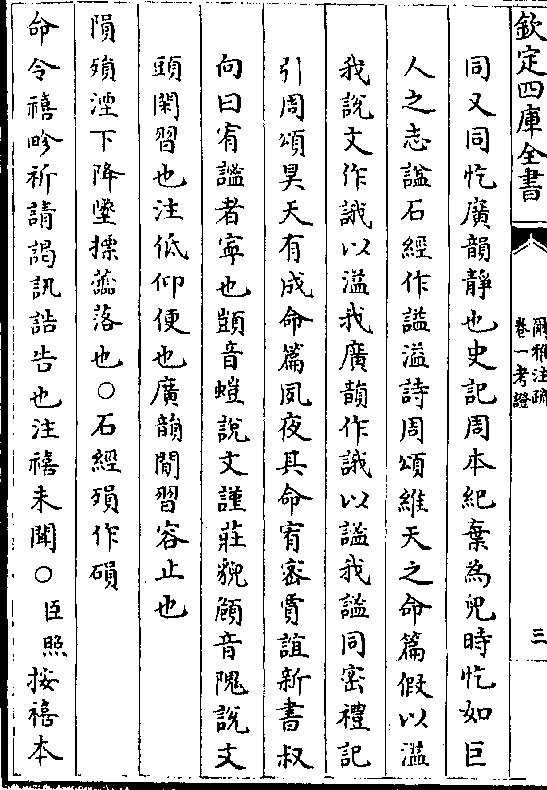 欽定四庫全書
爾雅注疏
卷一考證
三
同又同忔廣韻靜也史記周本紀棄為兒時忔如巨
人之志謐石經作謐溢詩周頌維天之命篇假以溢
我說文作誐以溢我廣韻作誐以謐我謐同宻禮記
引周頌昊天有成命篇夙夜其命宥宻賈誼新書叔
向曰宥謐者寧也顗音螘說文謹莊貌頠音隗說文
頭閑習也注低仰便也廣韻閒習容止也
隕殞湮下降墜摽蘦落也○石經殞作磒
命令禧畛祈請謁訊誥告也注禧未聞○臣照按禧本